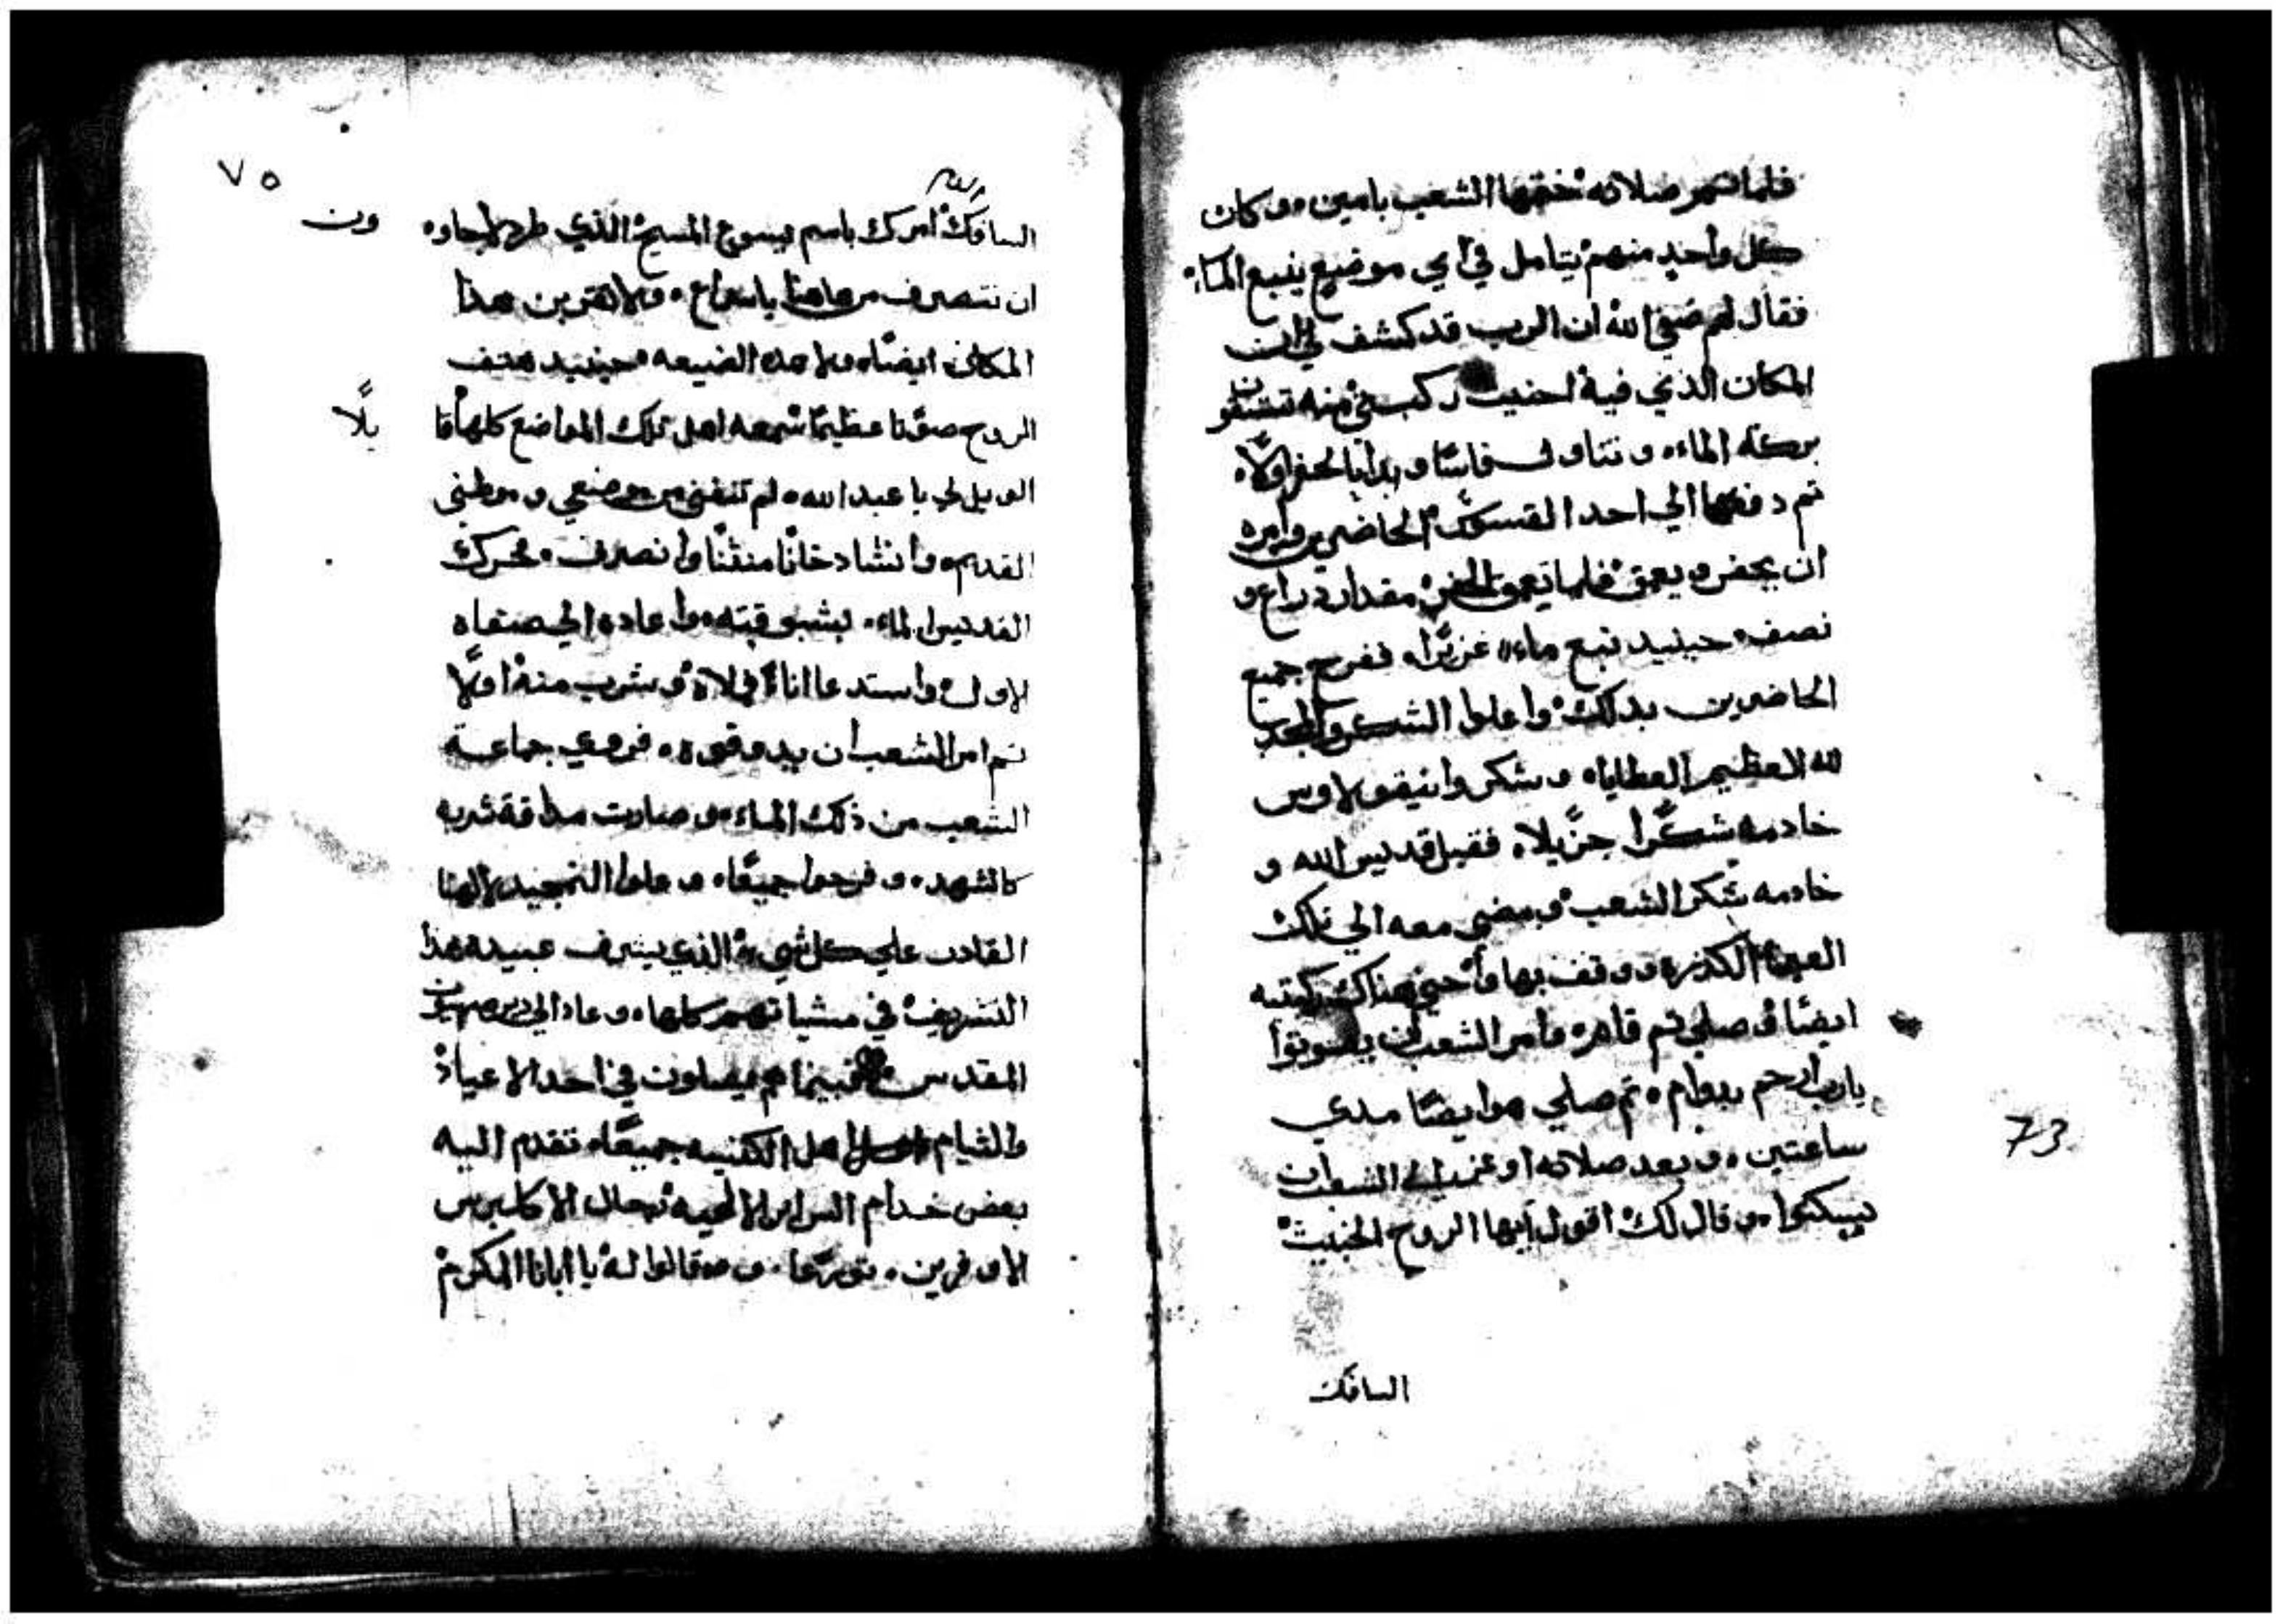 فلما تمم صلاته ختمها الشعب بامين، وكان
كل واحد منهم يتامل في اي موضع ينبع الماء
فقال لهم صفي الله ان الرب قد كشف لي ان
المكان الذي فيه احنيت ركبتي منه تستقون
بركة الماء، وتناول فاسا وبدا بالحفر اولا
ثم دفعها الي احد القسوس الحاضرين وامره
ان يحفر ويعمق فلما تعمق الحفر مقدار دراع و
نصف حينيد نبع ماء غزيرا، ففرح جميع
الحاضرين بدلك واعلوا الشكر والمجد
لله العظيم العطاياه وشكروا نيقولاوس
خادمه شكرا جزيلا، فقبل قديس الله و
خادمه شكر الشعب ومضي معه الي تلك
العين الكدره ووقف بها واحني هناك ركبتيه
ايضا وصلي ثم قام وامر الشعب ان يصوتوا
يارب ارحم بدوام، ثم صلي هو ايضا مدي
ساعتين، وبعد صلاته اوعز الي الشعب ان
يسكتوا، وقال لك اقول ايها الروح الخبيث
السافك
73
٧٥
السافك امرك باسم يسوع المسيح الذي طرد لاجاوون
ان تنصرف من هاهنا باسراع، ولا تقربن هدا
المكان ايضا، ولا هده الضيعه حينيد هتف
الروح صوتا عظيما سمعه اهل تلك المواضع كلها قايلا
الويل لي يا عبد الله، لم تنفني من موضعي وموطني
القديم، وانشا دخانا منتنا وانصرف، فحرك
القديس الماء، واعاده الي صفاه
الاول واستدعا انا وشرب منه اولا
ثم امر الشعب ان يدوقوه، فروي جماعة
الشعب من ذلك الماء، وصارت مداقة شربه
كالشهد، وفرحوا جميعا، وعلوا التمجيد لالهنا
القادر علي كل شي الذي يشرف عبيده هدا
التشريف في مشياتهم كلها، وعاد الي دير صهيون
المقدس فبينما هم يصلون في احد الاعياد
والتيام اهل الكنيسه جميعا، تقدم اليه
بعض خدام السراير الالهيه رجال الاكليرس
الاوفرين تورعا، وقالوا له يا ابانا المكرم